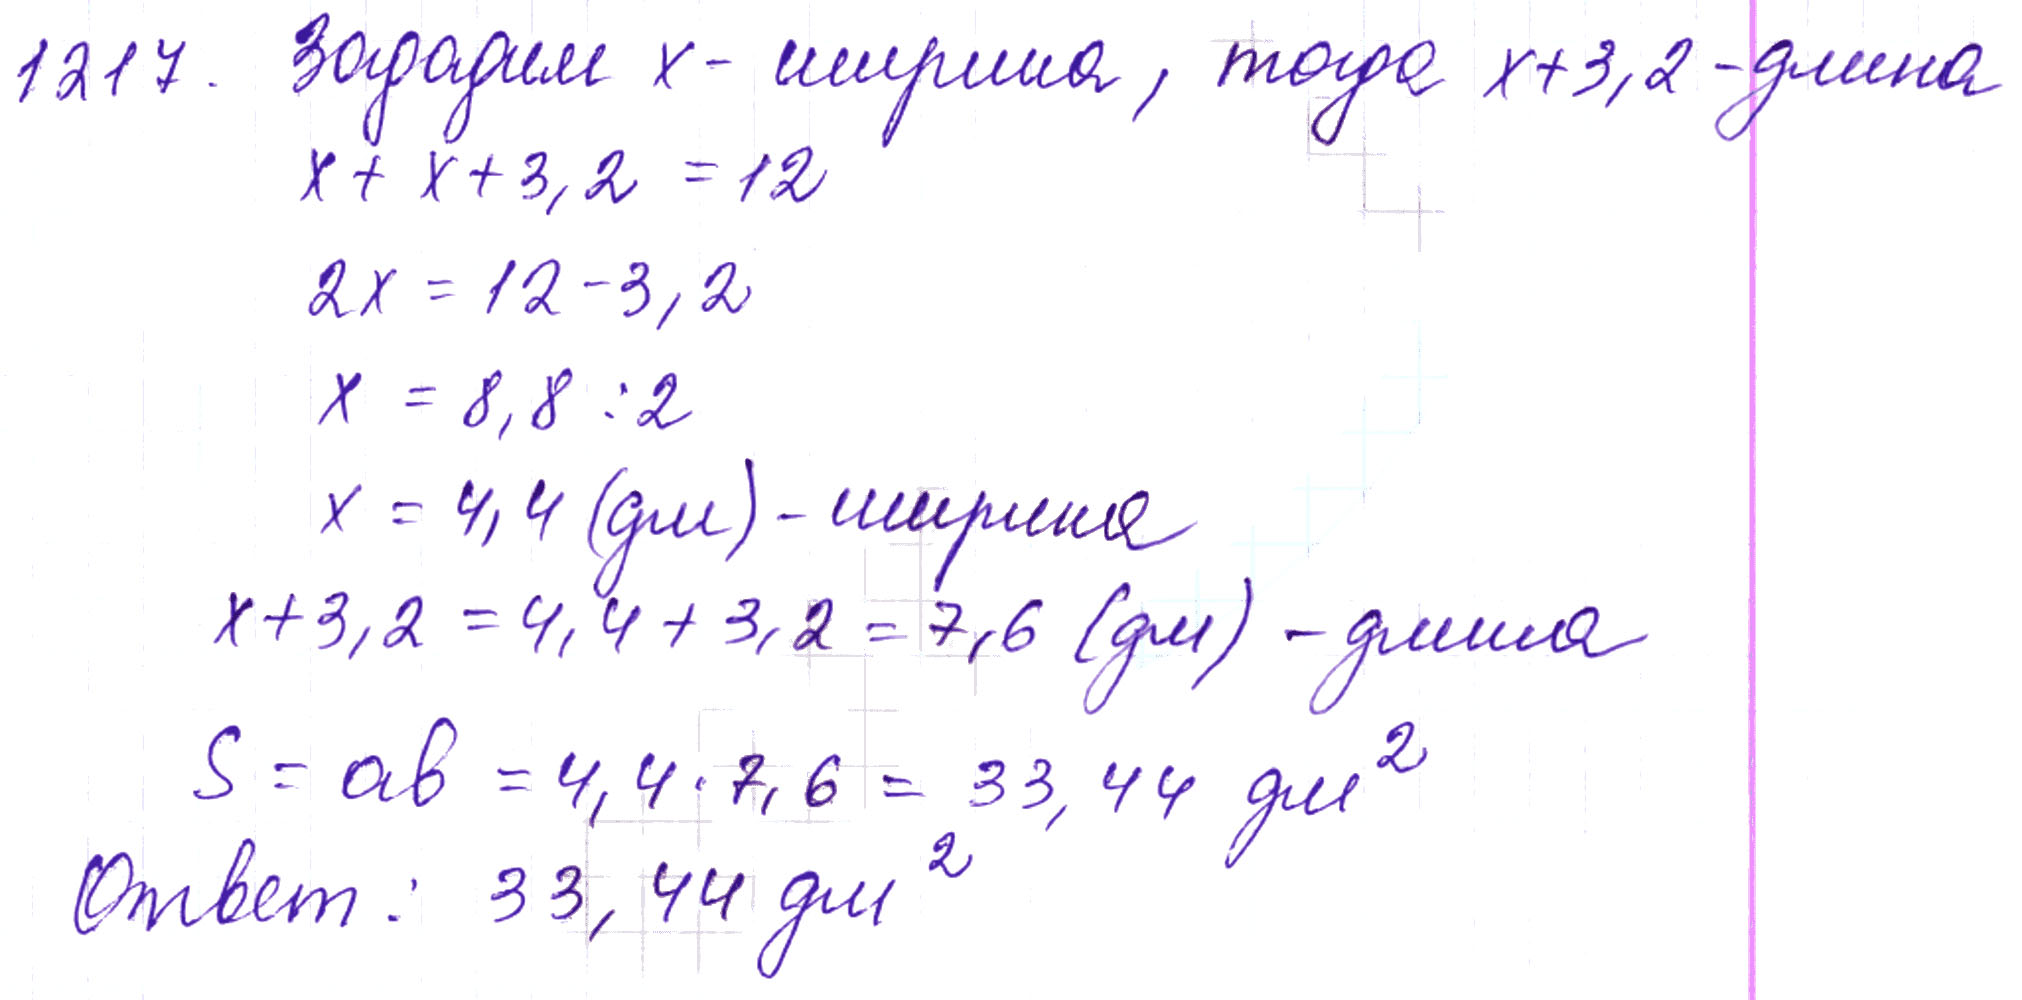 1217. Зададим x - ширина, тогда x+3,2 - длина
x + x + 3,2 = 12
2x = 12 - 3,2
x = 8,8 : 2
x = 4,4 (дм) - ширина
x + 3,2 = 4,4 + 3,2 = 7,6 (дм) - длина
S = ab = 4,4 · 7,6 = 33,44 дм²
Ответ: 33,44 дм²